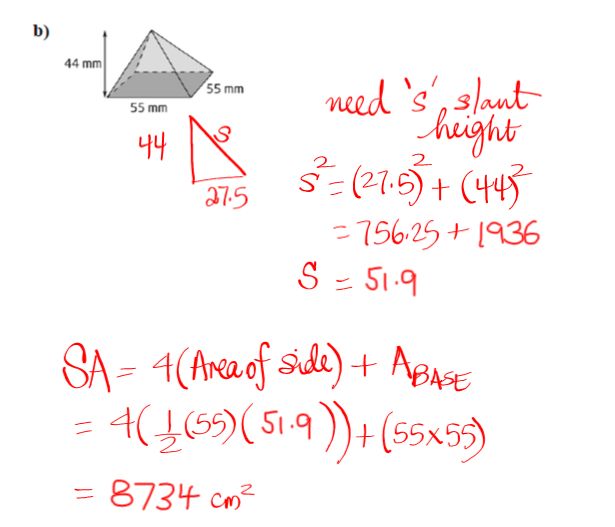 b)
44 mm
55 mm
55 mm
44
s
27.5
need 's' slant
height
s² = (27.5)² + (44)²
= 756.25 + 1936
S = 51.9
SA = 4(Area of side) + A_BASE
= 4(½(55)(51.9)) + (55×55)
= 8734 cm²